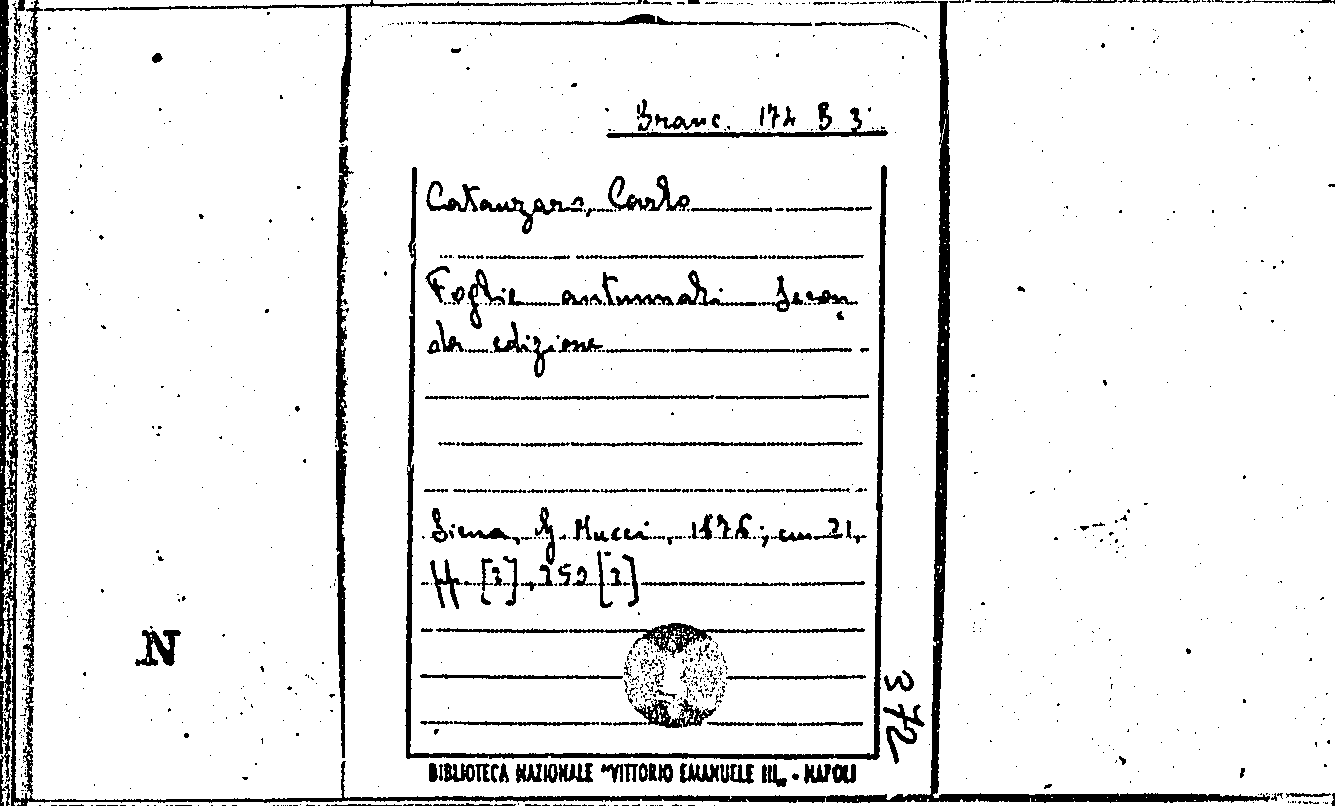 Branc. 174 B 3
Catanzaro, Carlo
Foglie autunnali Secon
da edizione
Siena, G. Mucci, 1876; cm 21,
pp. [2], 259 [2]
N
372
BIBLIOTECA NAZIONALE "VITTORIO EMANUELE III„ - NAPOLI